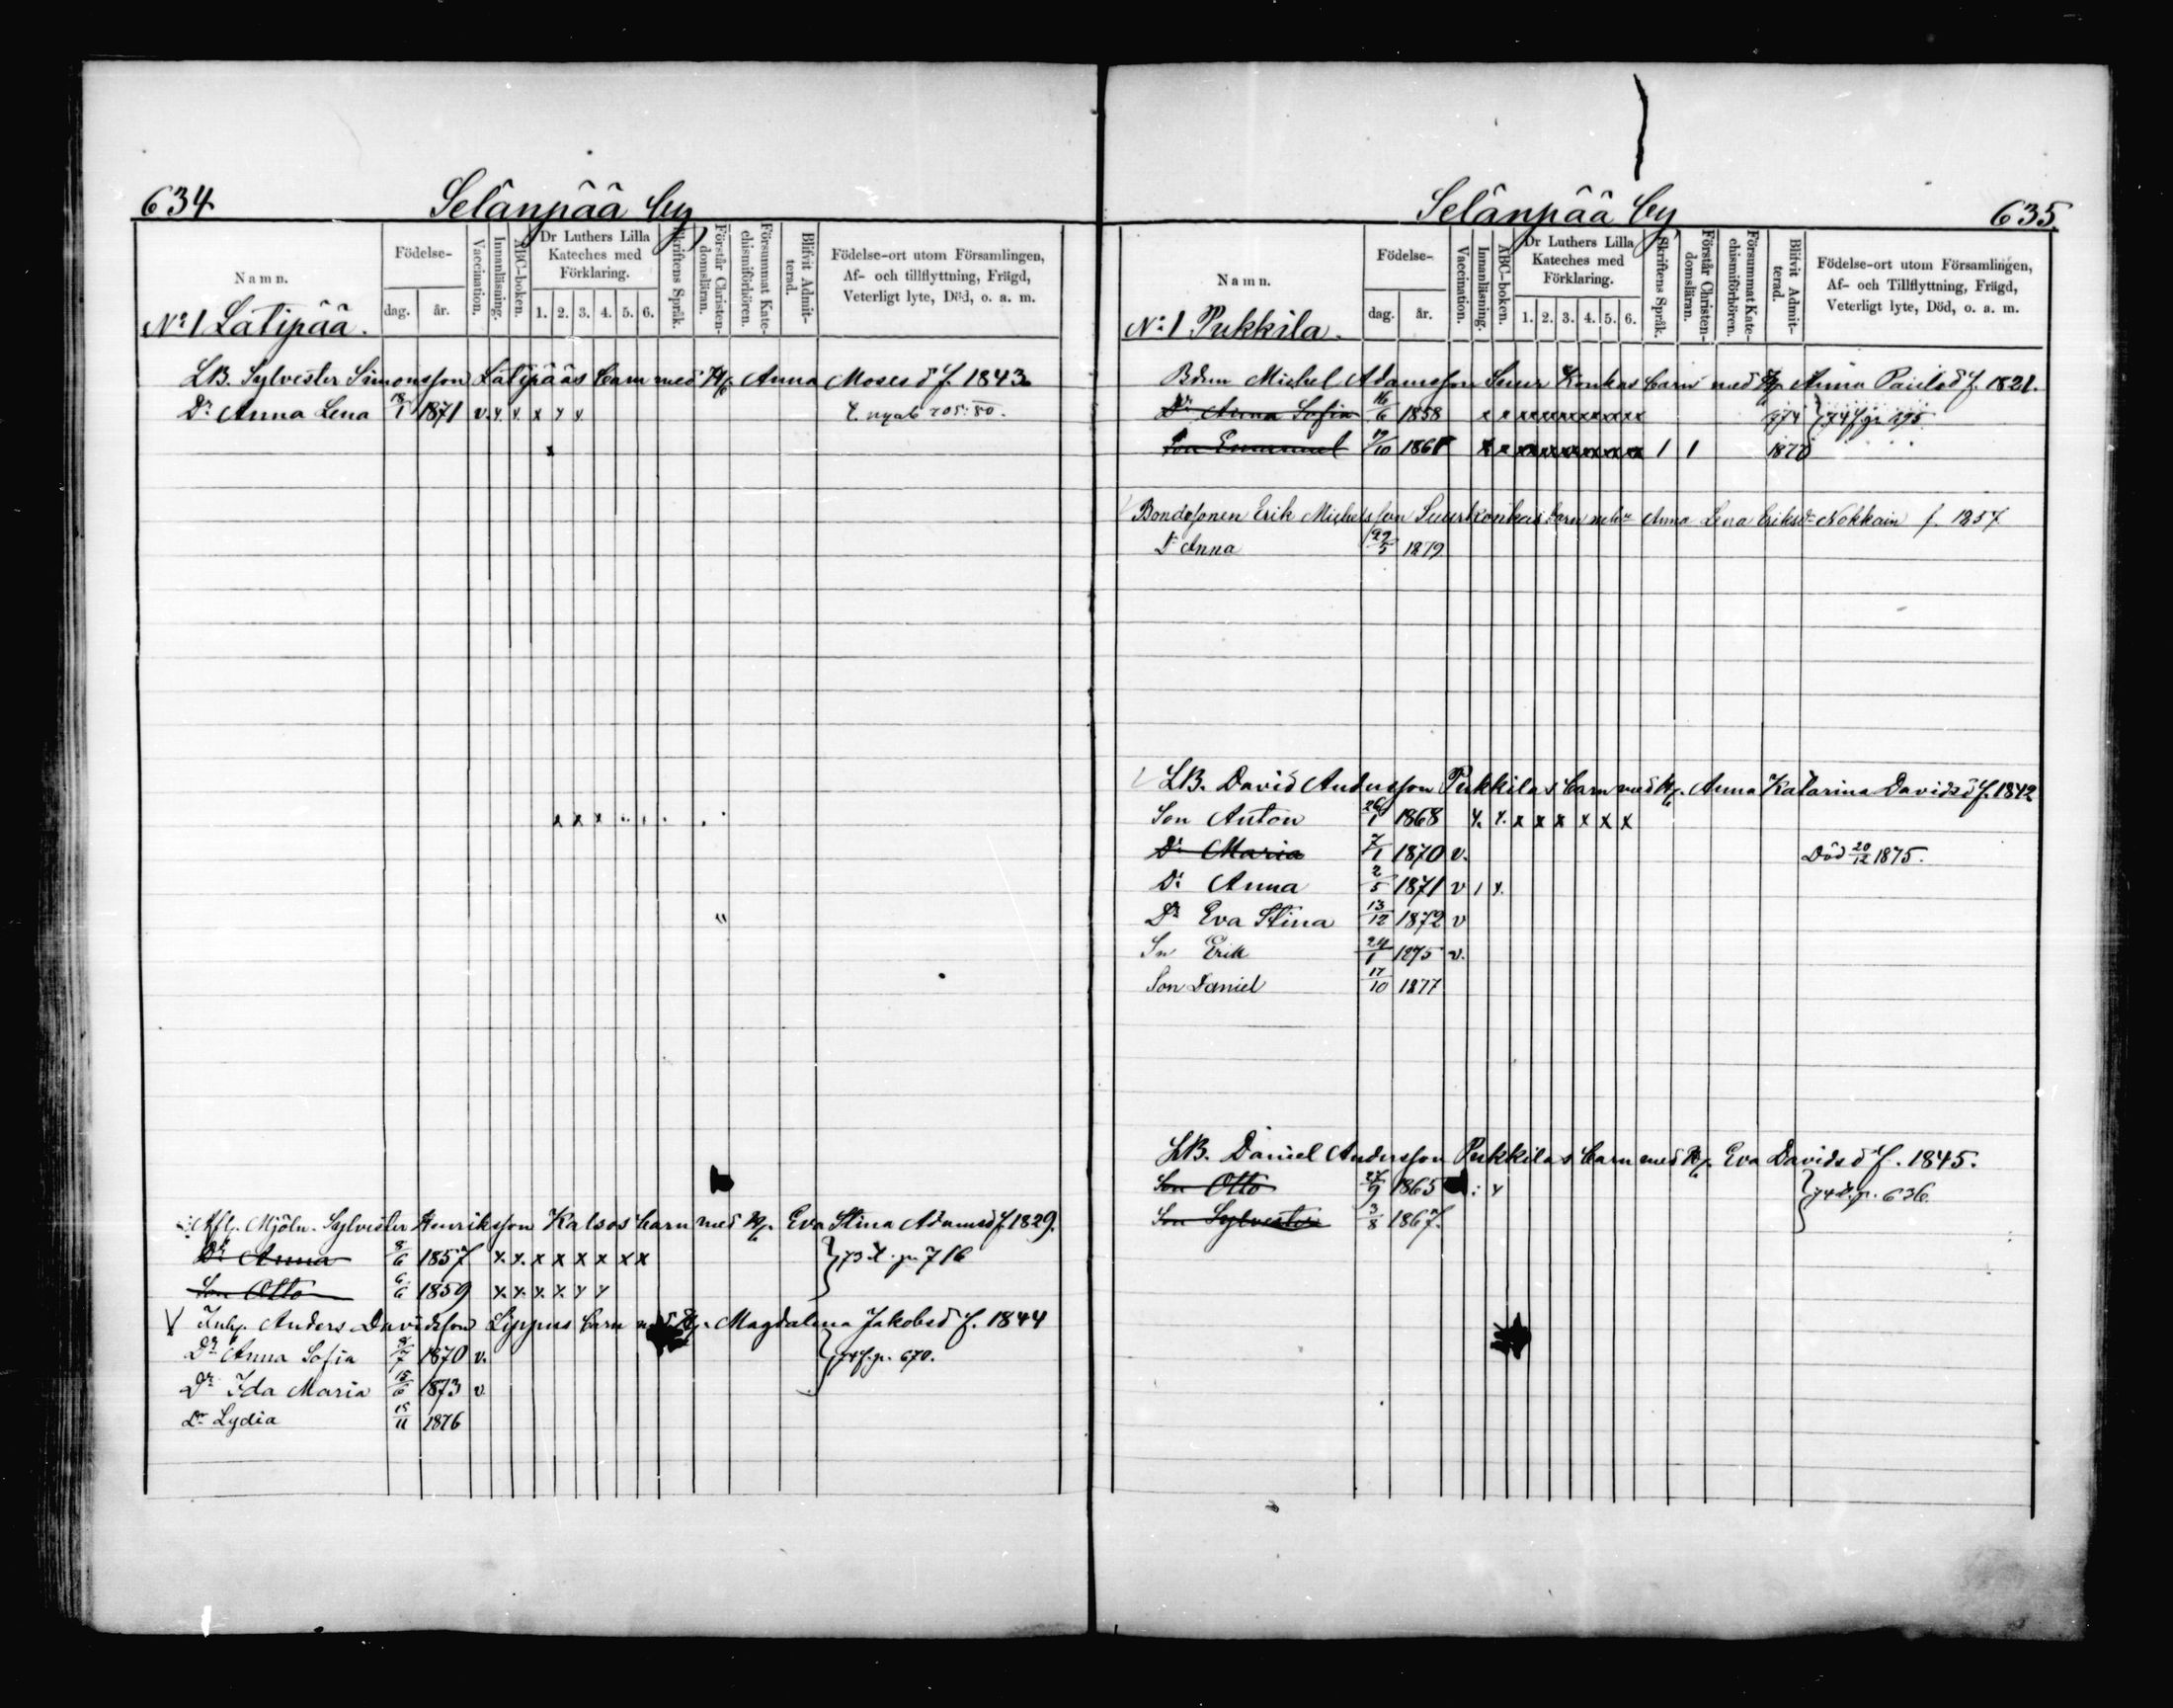 634
Selänpää by
Namn.
Födelse-
dag.
år.
Vaccination.
Innanläsning.
ABC-boken.
Dr Luthers Lilla
Kateches med
Förklaring.
1. 2. 3. 4. 5. 6.
Skriftens Språk.
Förstår Christen-
domsläran.
Försummat Kate-
chismiförhören.
Blifvit Admit-
terad.
Födelse-ort utom Församlingen,
Af- och tillflyttning, Frägd,
Veterligt lyte, Död, o. a. m.
No 1 Latipää.
LB. Sylvester Simonsson Latipääs barn med H. Anna Mosesd f. 1843
Dr Anna Lena 18/1 1871 v. x. x. x x x.
x
x x x
Mjöln. Sylvester Henriksson Katsos barn med H. Eva Stina Adamsd f. 1829.
Dr Anna 8/6 1857 x. x. x x x x x x 73 t. p. 716
Son Otto 6/6 1859 x. x. x. x. x x
V Inh. Anders Davidsson Lippus barn med H. Magdalena Jakobsd f. 1844
Dr Anna Sofia 8/7 1870 v. 74 f. p. 670.
Dr Ida Maria 15/6 1873 v.
Dr Lydia 15/11 1876
Selänpää by
635.
Namn.
Födelse-
dag.
år.
Vaccination.
Innanläsning.
ABC-boken.
Dr Luthers Lilla
Kateches med
Förklaring.
1. 2. 3. 4. 5. 6.
Skriftens Språk.
Förstår Christen-
domsläran.
Försummat Kate-
chismiförhören.
Blifvit Admit-
terad.
Födelse-ort utom Församlingen,
Af- och Tillflyttning, Frägd,
Veterligt lyte, Död, o. a. m.
No: 1 Pukkila.
Bdm Michel Adamsson Suur Konkas barn med H. Anna Paulsd f. 1821.
Dr Anna Sofia 16/6 1858
Son Emanuel 1/10 1861
Bondesonen Erik Michelsson Suurkonkas barn Anna Lena Eriksdr Nokkain f. 1857
Dr Anna 29/5 1879
LB. David Andersson Pukkilas barn med H. Anna Katarina Davidsd f. 1842
Son Anton 26/1 1868 x. x. x x x x x x
Dr Maria 7/1 1870 v. Död 20/12 1875.
Dr Anna 2/5 1871 v 1 x.
Dr Eva Stina 13/12 1872 v
Sn Erik 24/1 1875 v.
Son Daniel 17/10 1877
LB. Daniel Andersson Pukkilas barn med H. Eva Davidsd f. 1845.
Son Otto 27/9 1865 74 f. p. 636
Son Sylvester 3/8 1867.